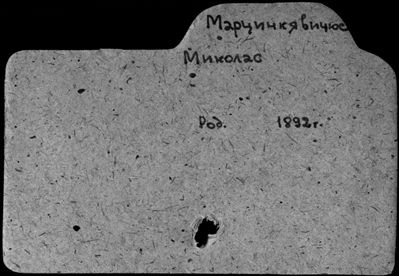 Марцинкявичюс
Миколас
Род. 1892г.